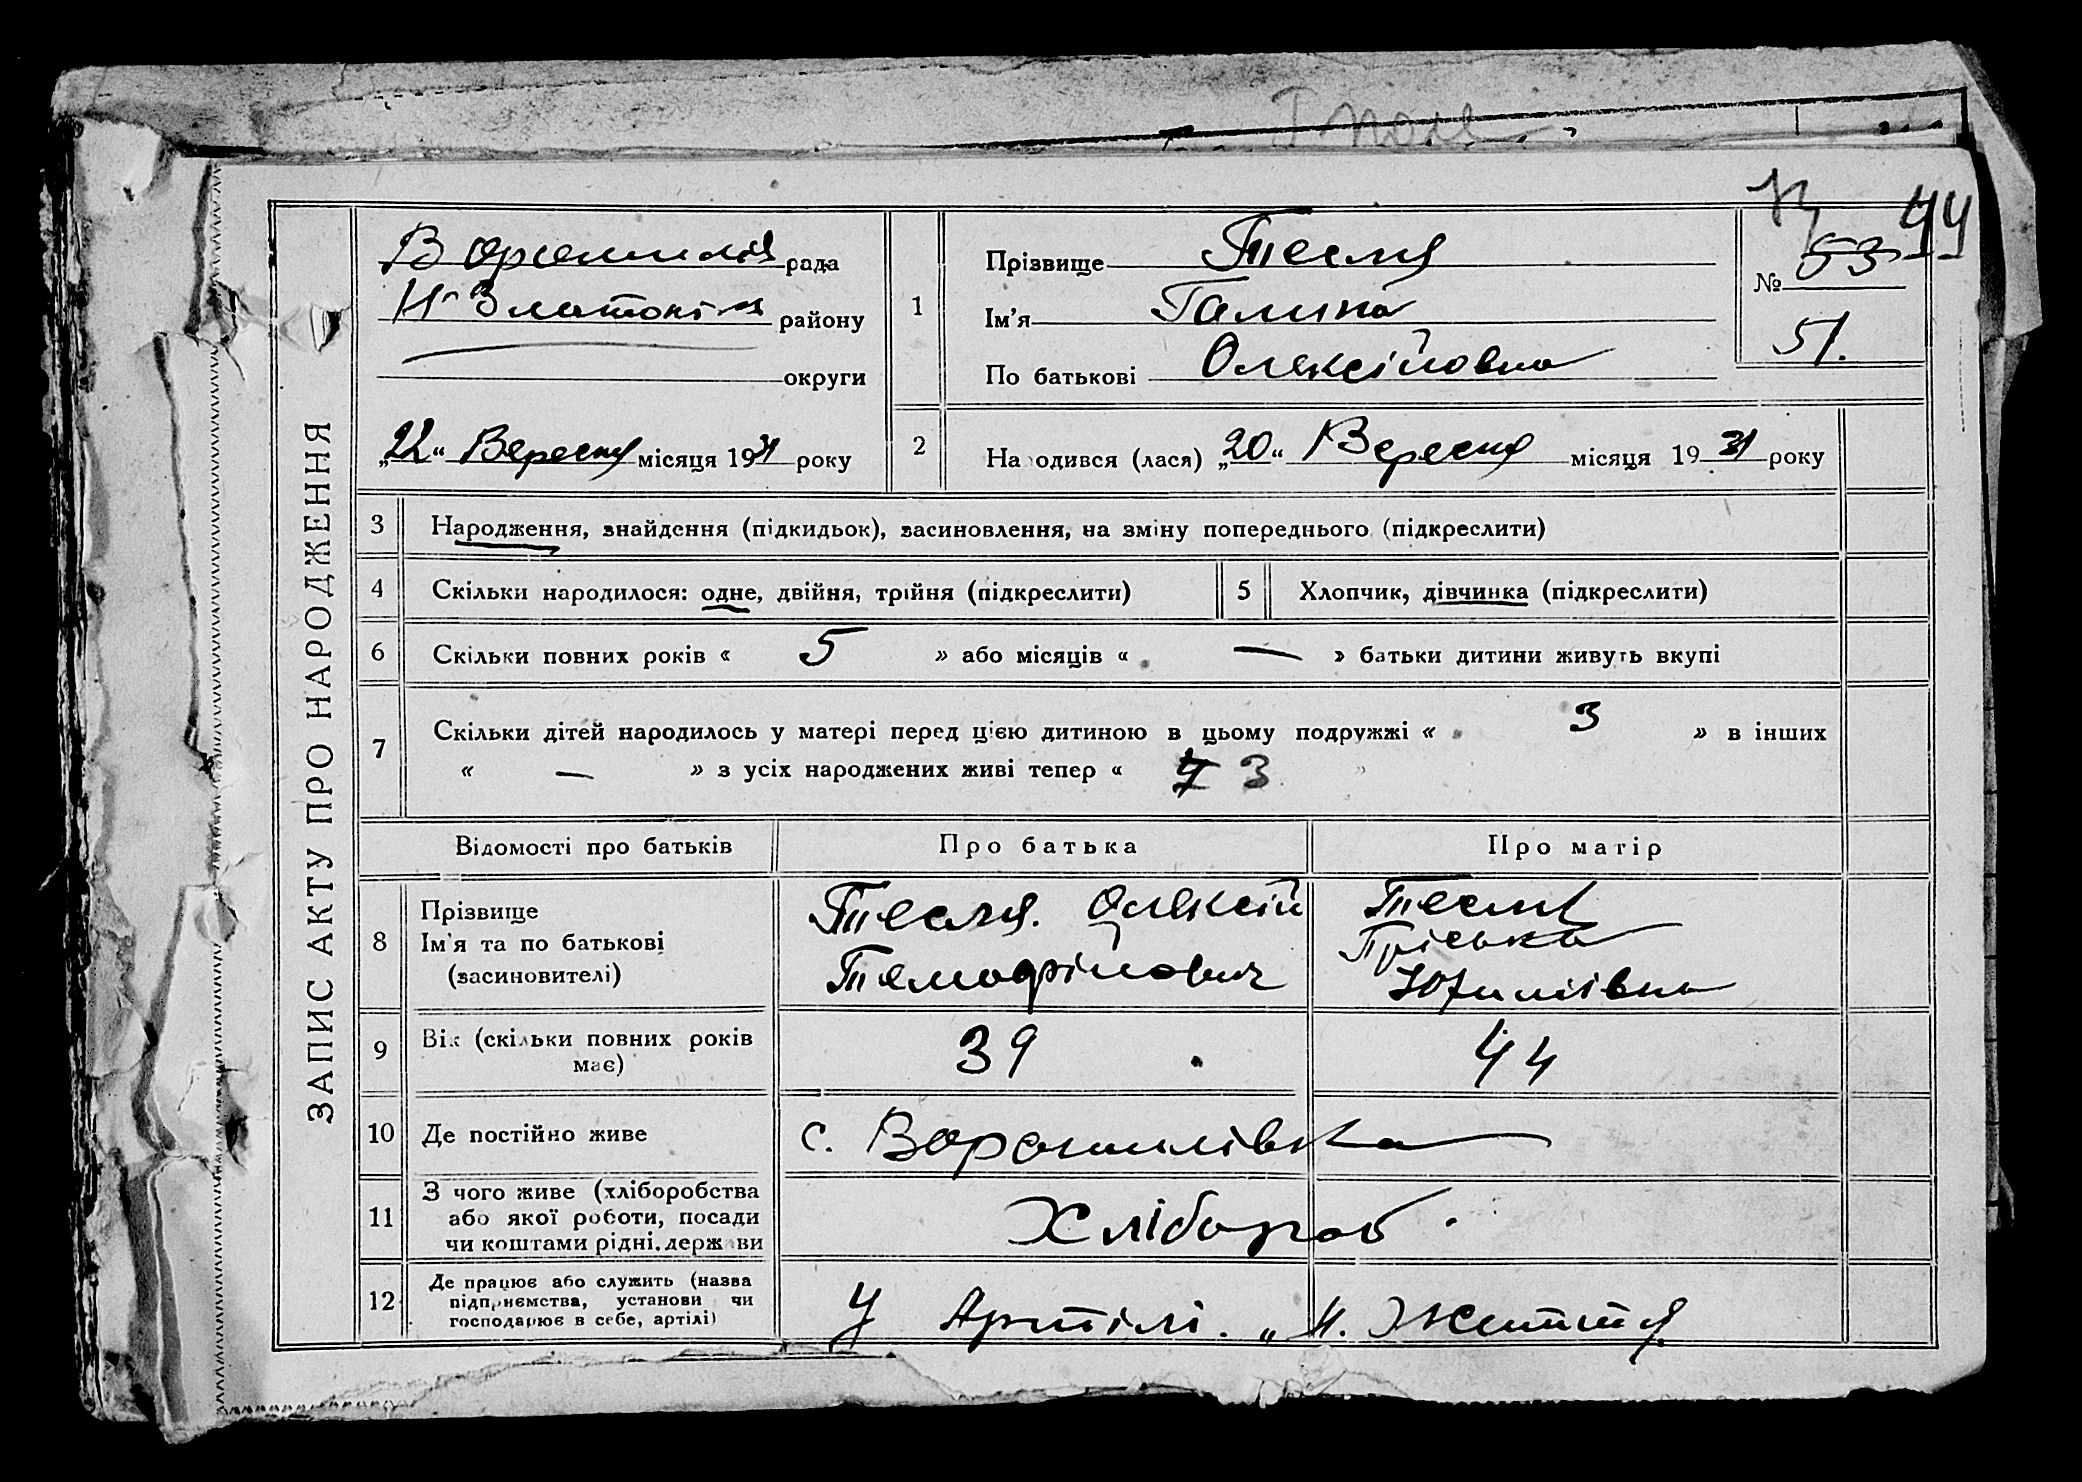 ЗАПИС АКТУ ПРО НАРОДЖЕННЯ
рада
району
округи
„22“ Вересня місяця 1931 року
1
Прізвище Тесля
Ім'я Галина
По батькові Олексіївна
44
№ 53
51.
2
На одився (лася) „20“ Вересня місяця 1931 року
3 Народження, знайдення (підкидьок), засиновлення, на зміну попереднього (підкреслити)
4 Скільки народилося: одне, двійня, трійня (підкреслити)
5 Хлопчик, дівчинка (підкреслити)
6 Скільки повних років « 5 » або місяців « — » батьки дитини живуть вкупі
7 Скільки дітей народилось у матері перед цією дитиною в цьому подружжі « 3 » в інших
« — » з усіх народжених живі тепер « 3 »
Відомості про батьків Про батька Про матір
8 Прізвище
Ім'я та по батькові
(засиновителі)
Тесля. Олексій
Темофійович
Тесля
Пріська
9 Вік (скільки повних років
має)
39 44
10 Де постійно живе с. Ворошилівка
11 З чого живе (хліборобства
або якої роботи, посади
чи коштами рідні, держави
Хлібороб
12 Де працює або служить (назва
підприємства, установи чи
господарює в себе, артілі)
У Артілі. „Н. Життя